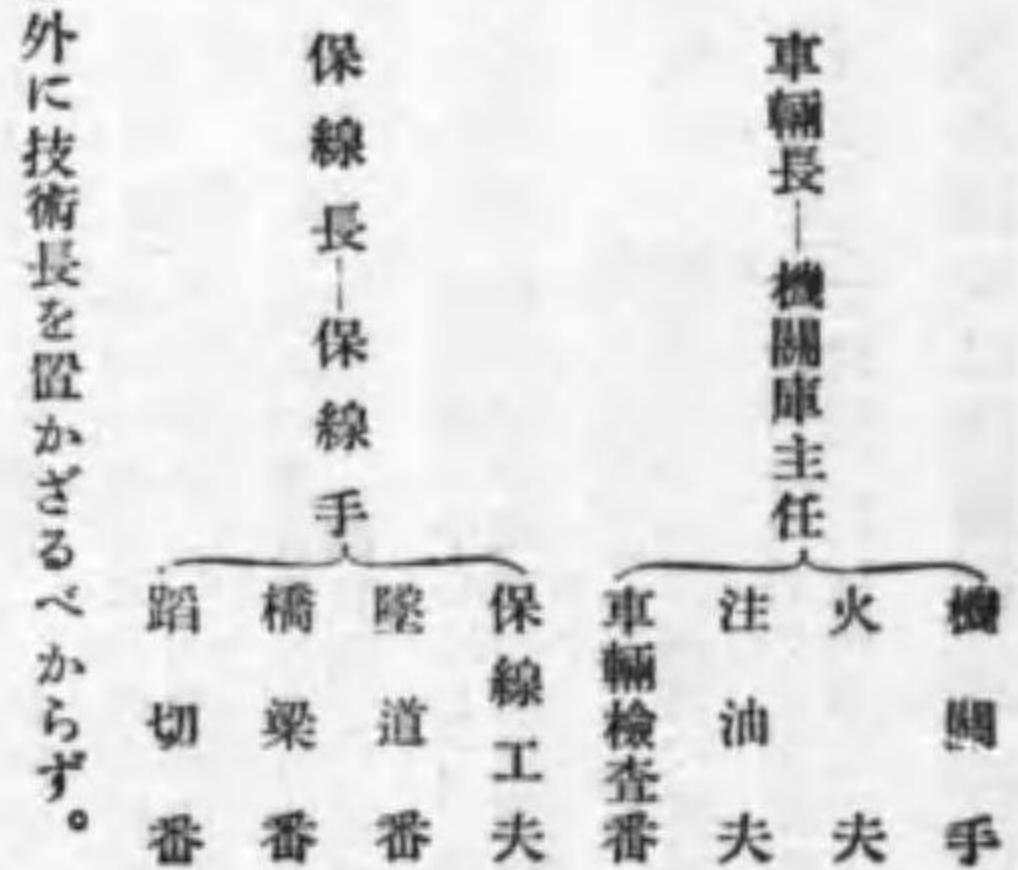 車輛長―機關庫主任
機關手
火夫
注油夫
車輛檢査番
保線長―保線手
保線工夫
隧道番
橋梁番
踏切番
外に技術長を置かざるべからず。